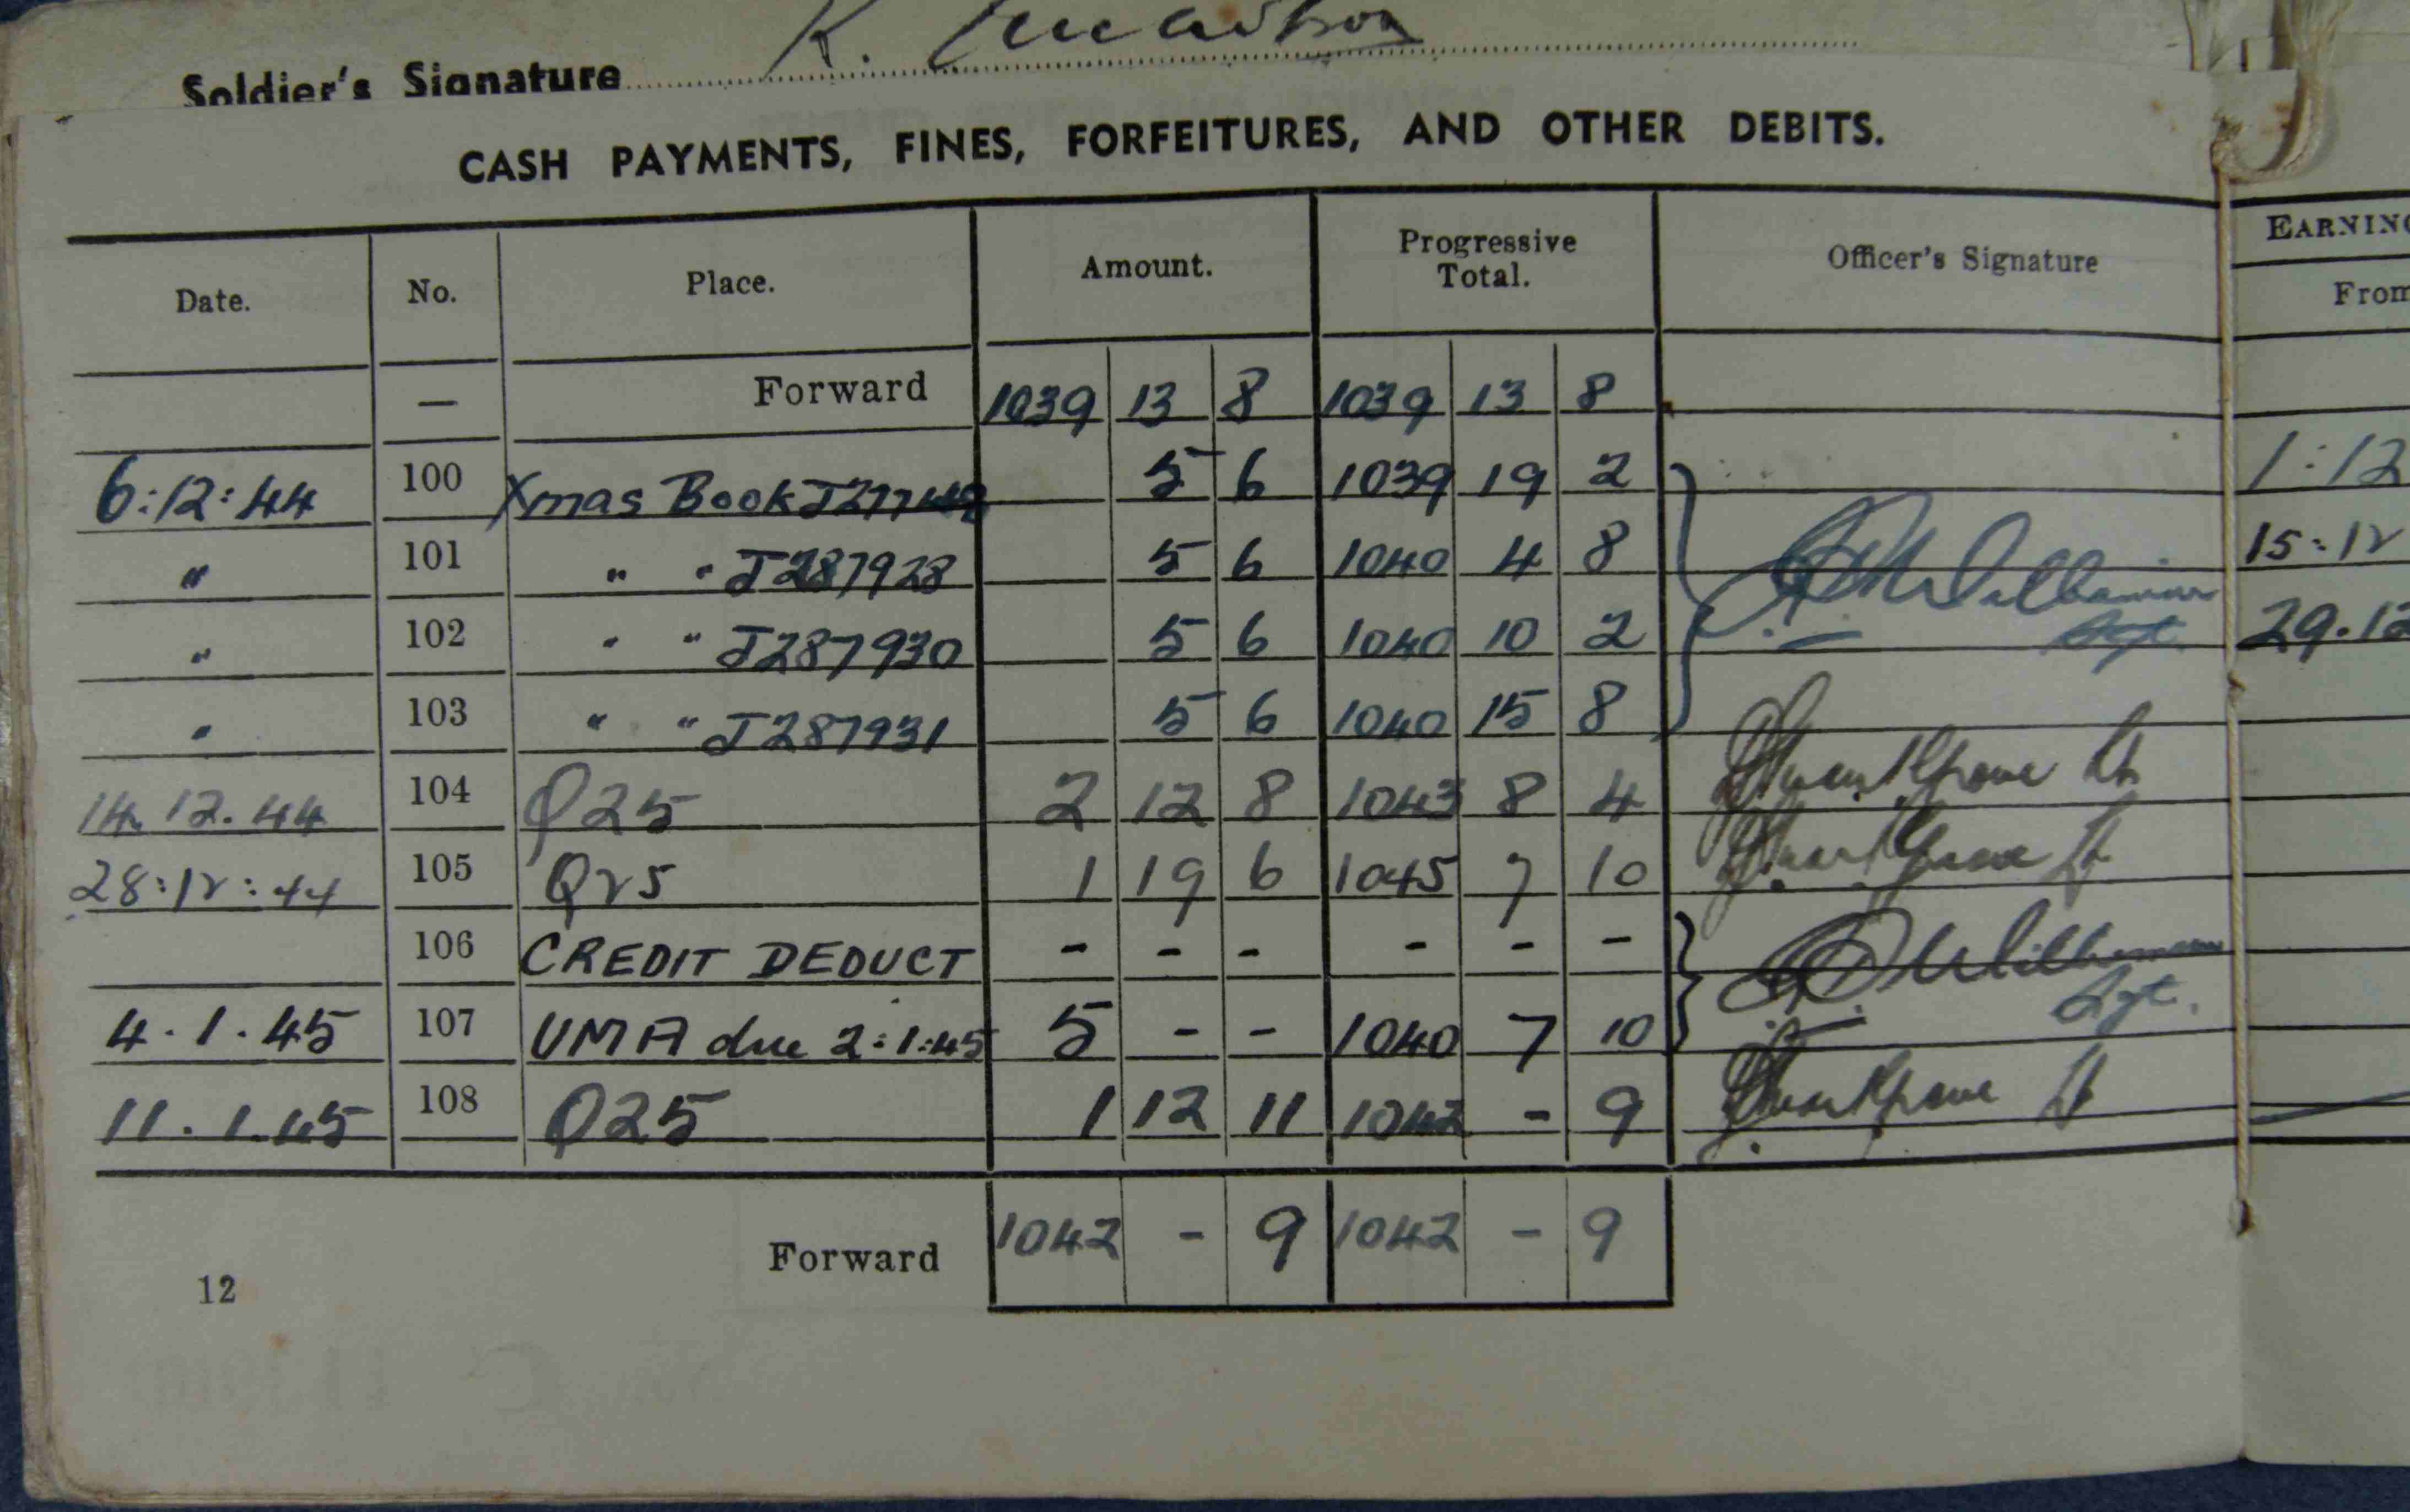 Soldier's Signature K.
CASH PAYMENTS, FINES, FORFEITURES, AND OTHER DEBITS.
Date. No. Place. Amount. Progressive Total. Officer's Signature
— Forward 1039 13 8 1039 13 8
6:12:44 100 Xmas Book 5 6 1039 19 2
" 101 " " J287928 5 6 1040 4 8
" 102 " " J287930 5 6 1040 10 2
" 103 " " J287931 5 6 1040 15 8
14.12.44 104 Q25 2 12 8 1043 8 4 Lt
28:12:44 105 Q25 1 19 6 1045 7 10 Lt
106 CREDIT DEDUCT - - - - - -
4.1.45 107 UMA due 2:1:45 5 - - 1040 7 10 Sgt.
11.1.45 108 Q25 1 12 11 1042 - 9 Lt
Forward 1042 - 9 1042 - 9
12
EARNING
From
1:12
15:12
29.12